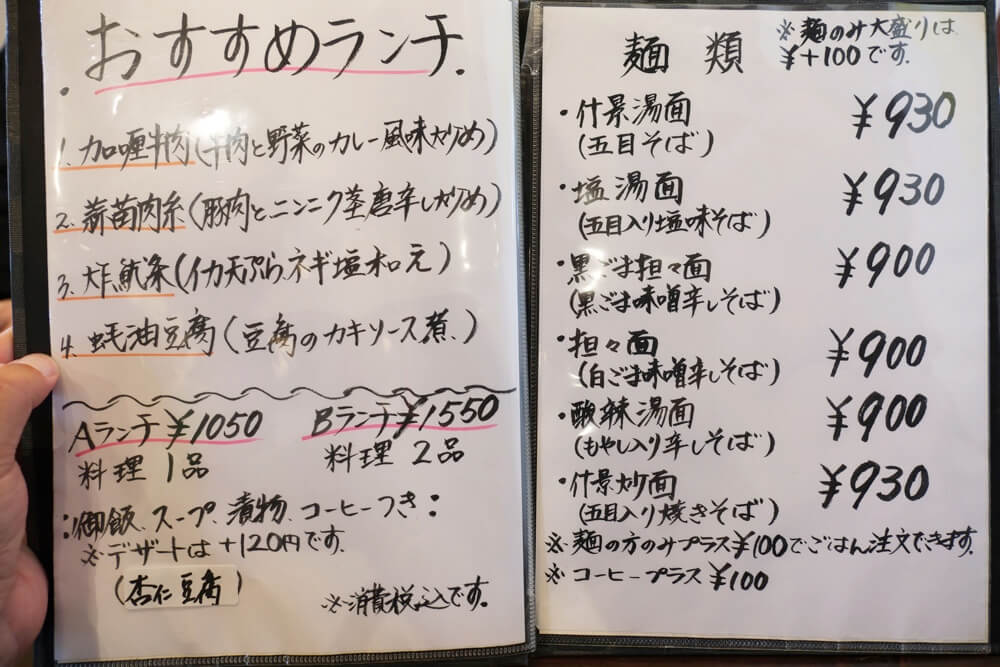 おすすめランチ
1. 加哩牛肉(牛肉と野菜のカレー風味炒め)
2. 蒜苗肉糸(豚肉とニンニク茎唐辛し炒め)
3. 炸魷条(イカ天ぷらネギ塩和え)
4. 蚝油豆腐(豆腐のカキソース煮)
Aランチ¥1050
料理 1品
Bランチ¥1550
料理 2品
御飯、スープ、漬物、コーヒーつき
※デザートは+120円です。
(杏仁豆腐)
※消費税込です。
麺類
※麺のみ大盛りは
¥+100です。
・什景湯面 ¥930
(五目そば)
・塩湯面 ¥930
(五目入り塩味そば)
・黒ごま担々面 ¥900
(黒ごま味噌辛しそば)
・担々面 ¥900
(白ごま味噌辛しそば)
・酸辣湯面 ¥900
(もやし入り辛しそば)
・什景炒面 ¥930
(五目入り焼きそば)
※麺の方のみプラス¥100でごはん注文できます。
※コーヒープラス¥100